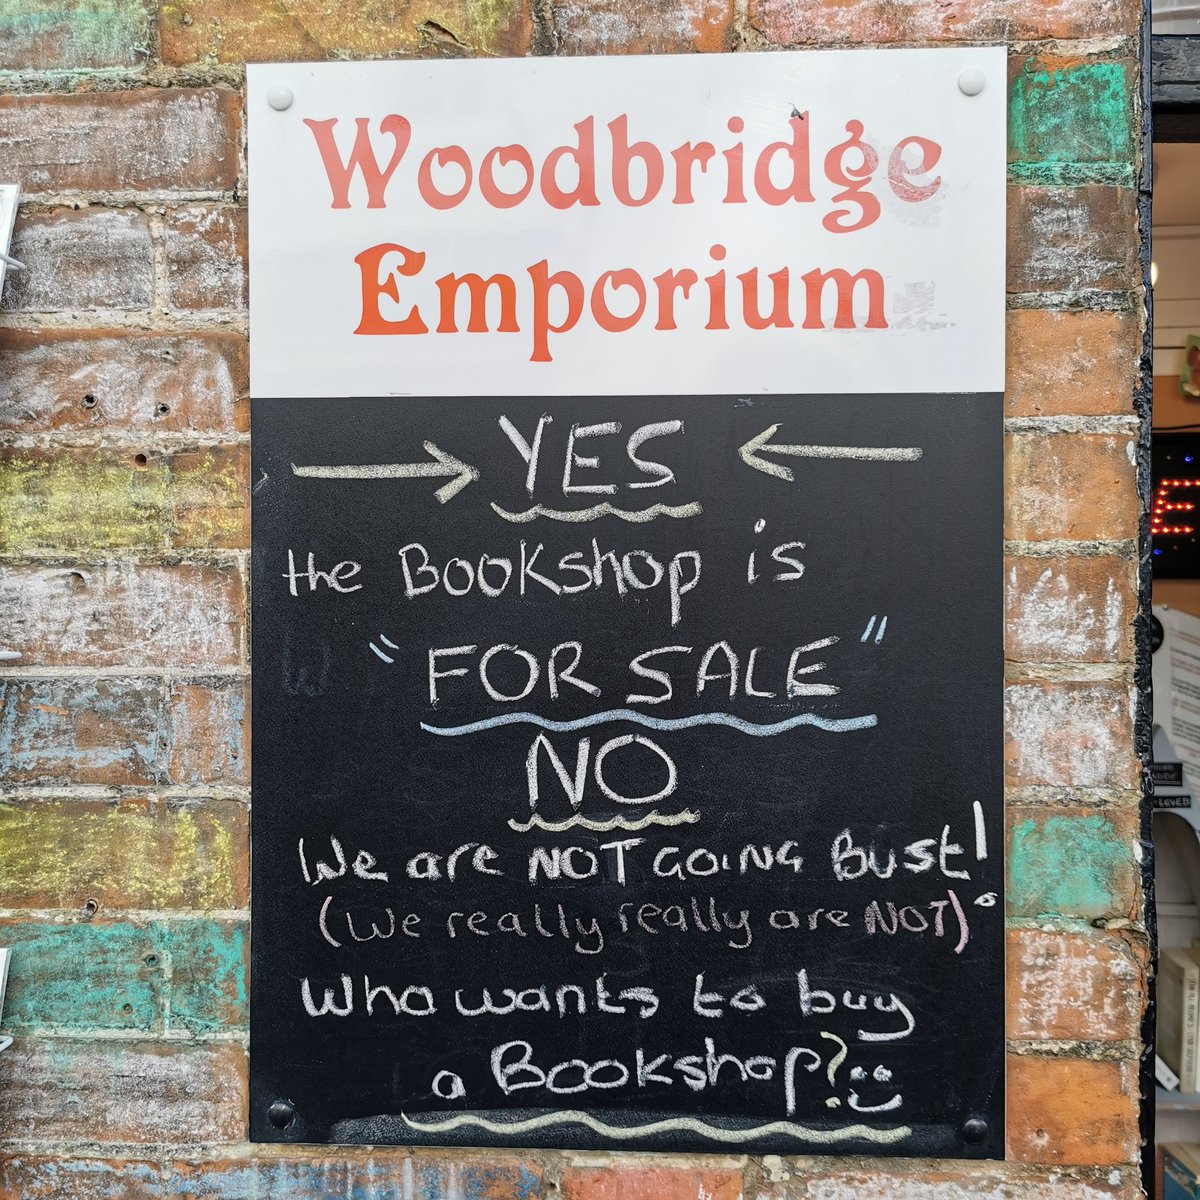 Woodbridge
Emporium
YES
the Bookshop is
"FOR SALE"
NO
We are NOT GOING Bust!
(We really really are NOT)
Who wants to buy
a Bookshop?
E